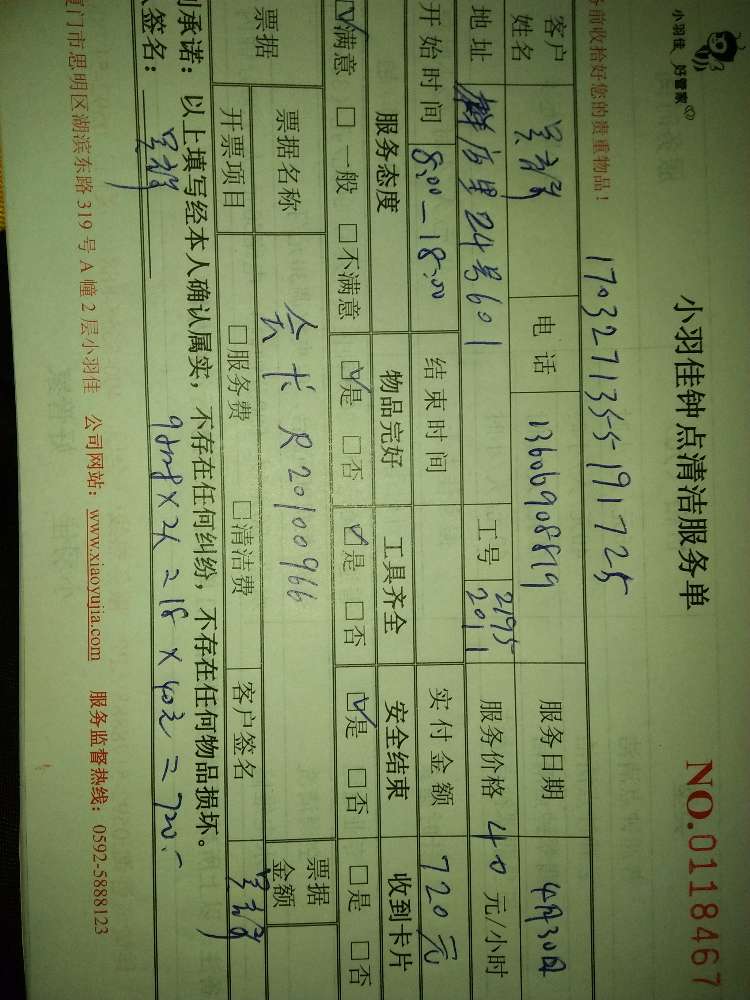 小羽佳 好管家
小羽佳钟点清洁服务单
NO.0118467
前收拾好您的贵重物品！
1703271355191725
客户姓名 电话 13606908819 服务日期 4月30日
地址 24号601 工号 2195 2011 服务价格 40 元/小时
开始时间 8:00—18:00 结束时间 实付金额 720元
服务态度 物品完好 工具齐全 安全结束 收到卡片
☑满意 □一般 □不满意 ☑是 □否 ☑是 □否 ☑是 □否 □是 □否
票据 票据名称 会卡 R20100966 票据金额
开票项目 □服务费 □清洁费 客户签名
承诺：以上填写经本人确认属实，不存在任何纠纷，不存在任何物品损坏。
签名：
×2人=18×40元=720.-
厦门市思明区湖滨东路319号A幢2层小羽佳 公司网站：www.xiaoyujia.com 服务监督热线：0592-5888123